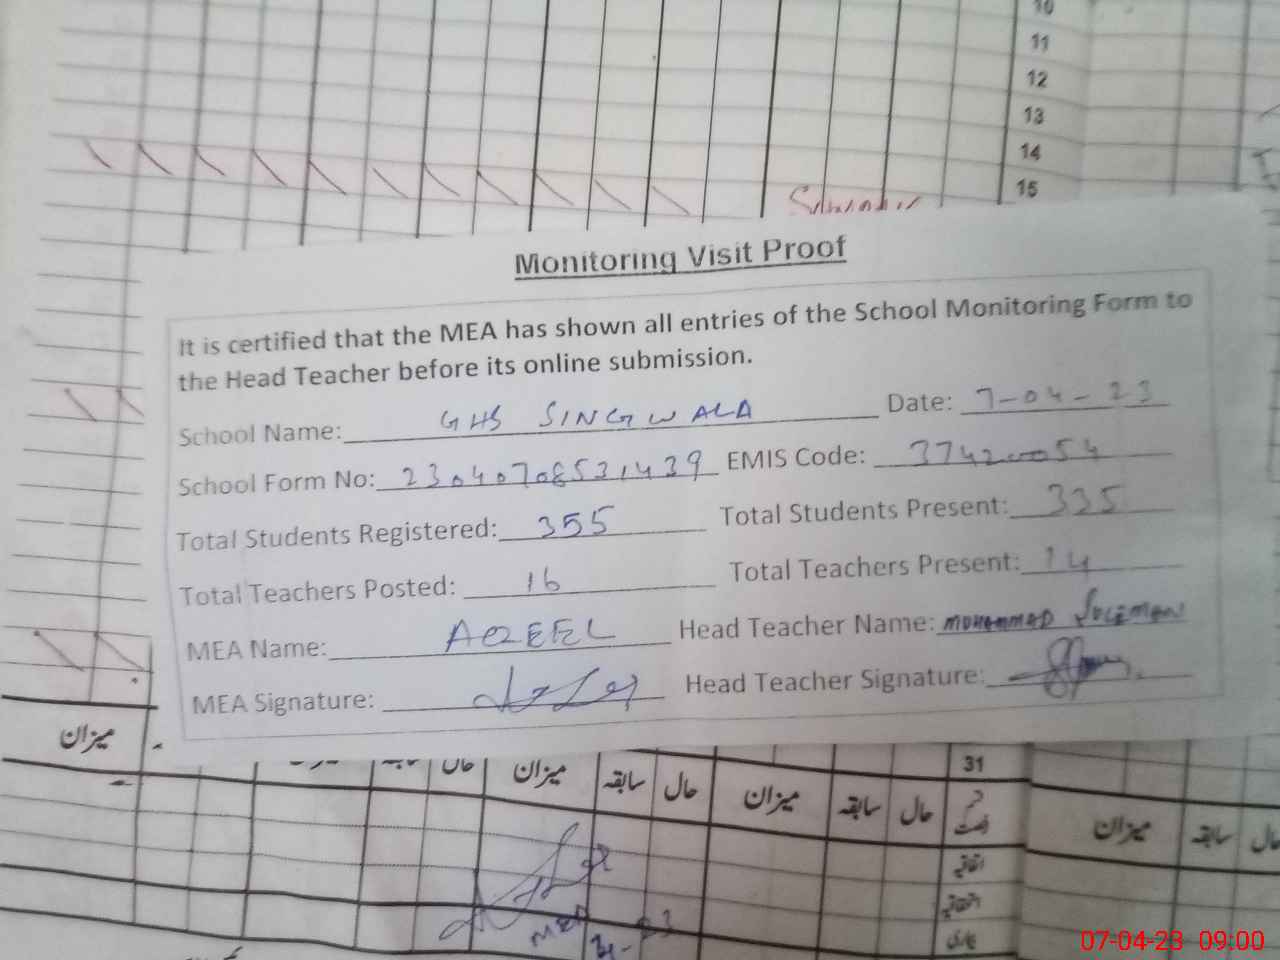 10
11
12
13
14
15
Monitoring Visit Proof
It is certified that the MEA has shown all entries of the School Monitoring Form to
the Head Teacher before its online submission.
School Name: GHS SINGWALA Date: 7-04-23
School Form No: 230407085231439 EMIS Code:
Total Students Registered: 355 Total Students Present: 335
Total Teachers Posted: 16 Total Teachers Present: 14
MEA Name: Head Teacher Name: MUHAMMAD SULEMAN
MEA Signature: Head Teacher Signature:
31
میزان
میزان حال سابقہ میزان حال سابقہ میزان
حال سابقہ میزان
MEA
07-04-23 09:00